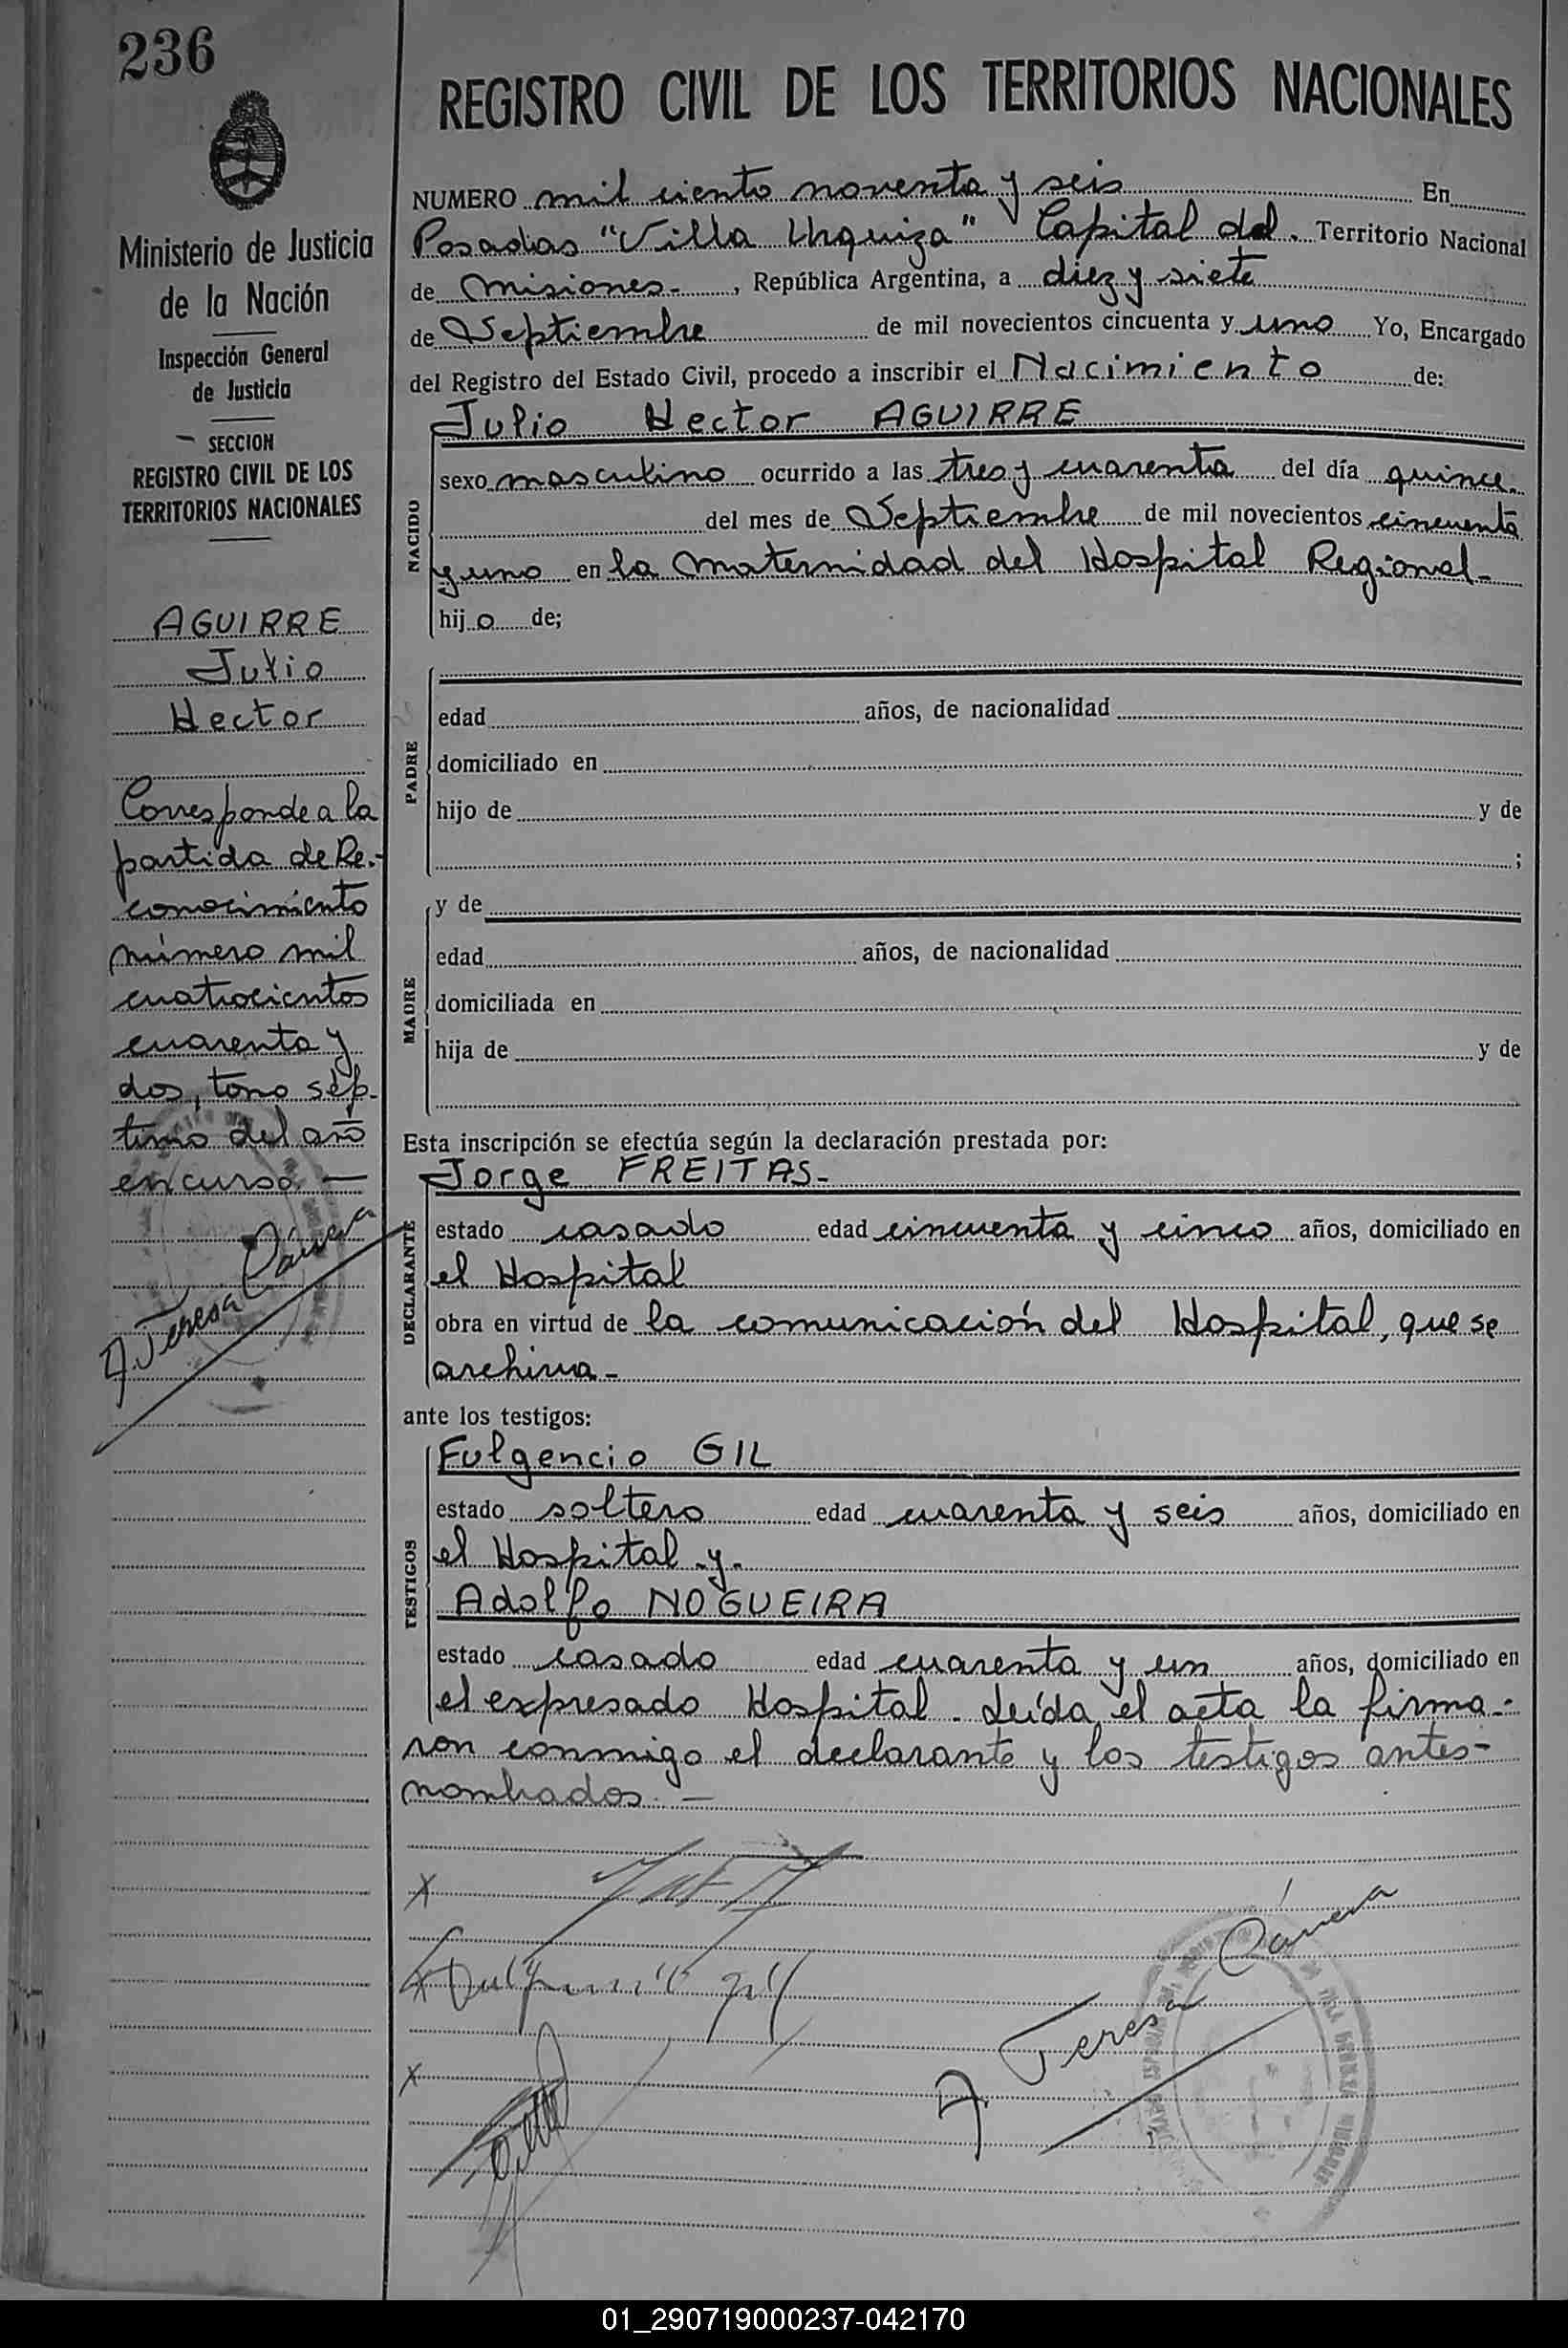 236
Ministerio de Justicia
de la Nación
Inspección General
de Justicia
SECCION
REGISTRO CIVIL DE LOS
TERRITORIOS NACIONALES
AGUIRRE
Julio
Hector
Corresponde a la
partida de Re-
conocimiento
número mil
cuatrocientos
cuarenta y
dos, tomo sép-
timo del año
en curso. —
A. Teresa Cáneva
REGISTRO CIVIL DE LOS TERRITORIOS NACIONALES
NUMERO mil ciento noventa y seis En
Posadas "Villa Urquiza" Capital del. Territorio Nacional
de Misiones-, República Argentina, a diez y siete
de Septiembre de mil novecientos cincuenta y uno Yo, Encargado
del Registro del Estado Civil, procedo a inscribir el Nacimiento de:
Julio Hector AGUIRRE
NACIDO
sexo masculino ocurrido a las tres y cuarenta del día quince.
del mes de Septiembre de mil novecientos cincuenta
y uno en la Maternidad del Hospital Regional-
hijo de;
PADRE
edad años, de nacionalidad
domiciliado en
hijo de y de
;
MADRE
y de
edad años, de nacionalidad
domiciliada en
hija de y de
Esta inscripción se efectúa según la declaración prestada por:
Jorge FREITAS-
DECLARANTE
estado casado edad cincuenta y cinco años, domiciliado en
el Hospital
obra en virtud de la comunicación del Hospital, que se
archiva-
ante los testigos:
TESTIGOS
Fulgencio GIL
estado soltero edad cuarenta y seis años, domiciliado en
el Hospital y.
Adolfo NOGUEIRA
estado casado edad cuarenta y un años, domiciliado en
el expresado Hospital. Leída el acta la firma-
ron conmigo el declarante y los testigos antes-
nombrados. —
x
x Fulgencio Gil
x
A. Teresa Cáneva
01_290719000237-042170